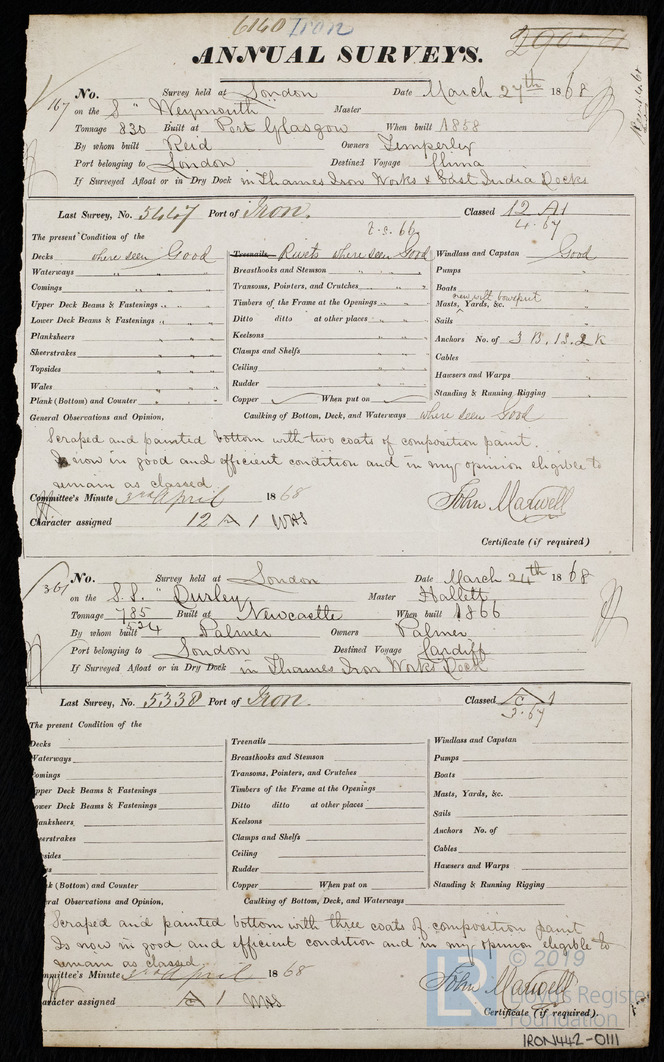 6140 Iron
ANNUAL SURVEYS.
167
No. Survey held at London Date March 27th 1868
on the S " Weymouth Master
Tonnage 830 Built at Port Glasgow When built 1858
By whom built Reid Owners Temperley
Port belonging to London Destined Voyage China
If Surveyed Afloat or in Dry Dock in Thames Iron Works & East India Docks
Last Survey, No. 5447 Port of Iron. Classed 12 A1
4.67
The present Condition of the
Decks where seen Good Treenails Rivets where seen Good Windlass and Capstan Good
Waterways " " Breasthooks and Stemson " " Pumps "
Comings " " Transoms, Pointers, and Crutches " " Boats "
new wilt bowsprit
Upper Deck Beams & Fastenings " " Timbers of the Frame at the Openings " " Masts, Yards, &c. "
Lower Deck Beams & Fastenings " " Ditto ditto at other places " " Sails "
Planksheers " " Keelsons " " Anchors No. of 3 B, 1 S, 2 K
Sheerstrakes " " Clamps and Shelfs " " Cables "
Topsides " " Ceiling " " Hawsers and Warps "
Wales " " Rudder " " Standing & Running Rigging "
Plank (Bottom) and Counter " " Copper When put on
General Observations and Opinion, Caulking of Bottom, Deck, and Waterways where seen Good
Scraped and painted bottom with two coats of composition paint.
Is now in good and efficient condition and in my opinion eligible to
remain as classed
Committee's Minute 3rd April 1868 John Maxwell
Character assigned 12 A 1 WAS
Certificate (if required)
361
No. Survey held at London Date March 24th 1868
on the S.S. " Dursley Master Hallett
Tonnage 785 Built at Newcastle When built 1866
524
By whom built Palmer Owners Palmer
Port belonging to London Destined Voyage Cardiff
If Surveyed Afloat or in Dry Dock in Thames Iron Works Dock
Last Survey, No. 5338 Port of Iron. Classed A 1
c
3.67
The present Condition of the
Decks Treenails Windlass and Capstan
Waterways Breasthooks and Stemson Pumps
omings Transoms, Pointers, and Crutches Boats
pper Deck Beams & Fastenings Timbers of the Frame at the Openings Masts, Yards, &c.
ower Deck Beams & Fastenings Ditto ditto at other places Sails
anksheers Keelsons Anchors No. of
eerstrakes Clamps and Shelfs Cables
sides Ceiling Hawsers and Warps
s Rudder Standing & Running Rigging
k (Bottom) and Counter Copper When put on
ral Observations and Opinion, Caulking of Bottom, Deck, and Waterways
Scraped and painted bottom with three coats of composition paint
Is now in good and efficient condition and in my opinion eligible to
remain as classed
mmittee's Minute 3rd April 1868 John Maxwell
aracter assigned A 1 WAS
Certificate (if required).
LR © 2019
Lloyd's Register
Foundation
IRON442-0111